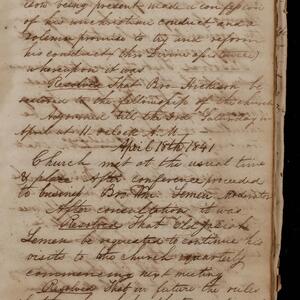 tion being present made a confession
of his unchristian conduct and a
solemn promise to try and reform
his conduct (thro Divine assistance)
whereupon it was
Resolved That Bro. Hickison be
restored to the fellowship of the church
Adjourned till the 3rd Saturday in
April at 11 oclock A.M.
April 18th 1841
Church met at the usual time
& place After conference proceeded
to business Bro Wm Lemen Moderator
After consultation it was
Resolved That Eld
Lemen be requested to continue his
visits to the church quarterly
commencing next meeting
Resolved That in future the rules